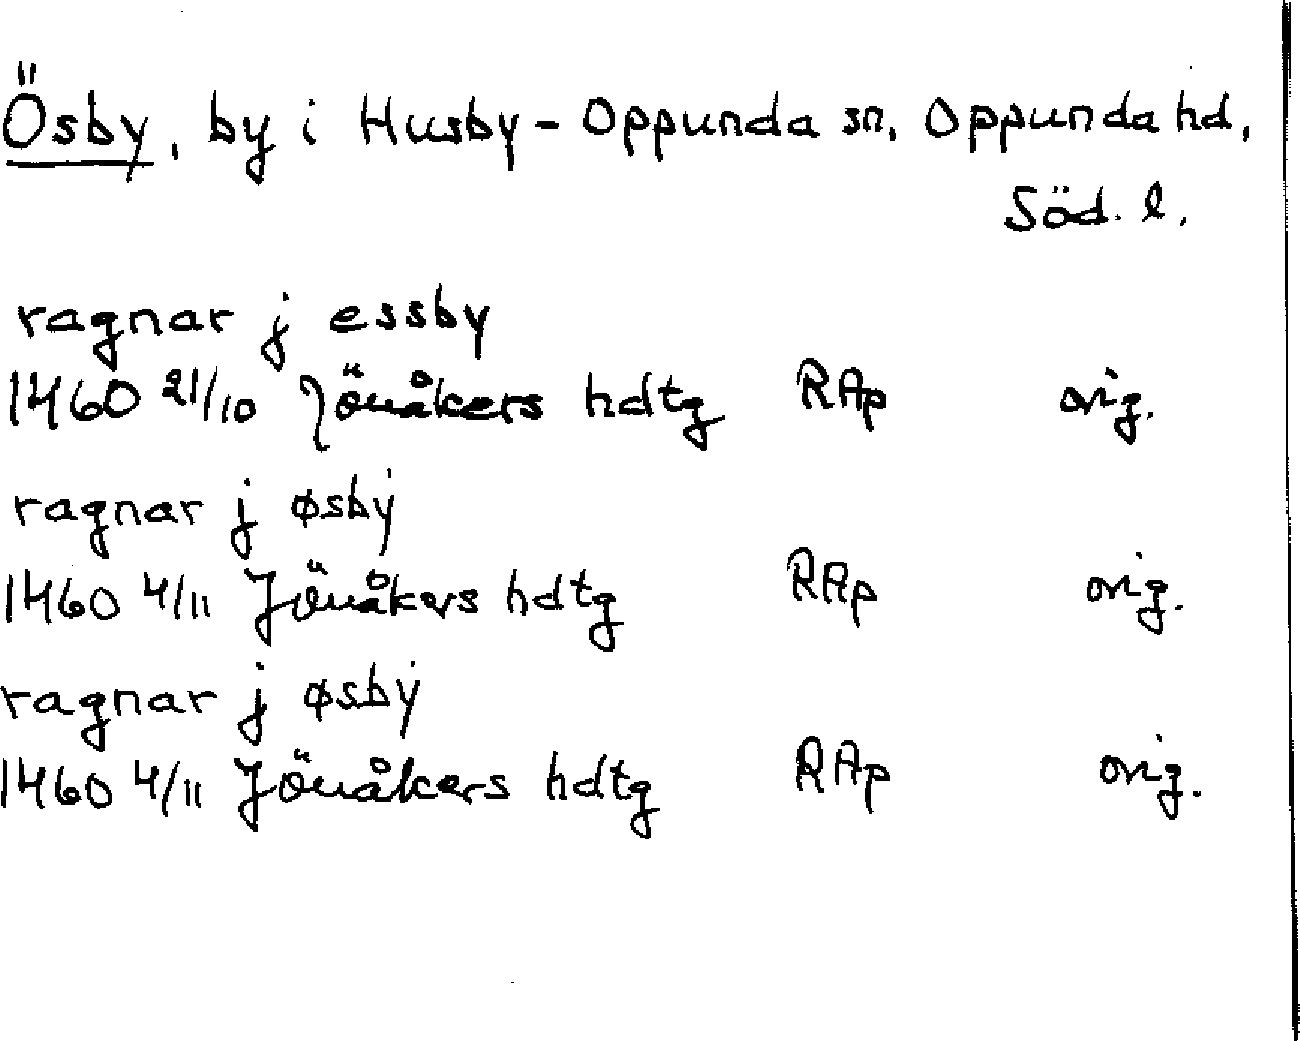 Ösby, by i Husby-Oppunda sn, Oppunda hd,
Söd. l.
ragnar j essby
1460 21/10 Jönåkers hdtg RAp orig.
ragnar j øsbẏ
1460 4/11 Jönåkers hdtg RAp orig.
ragnar j øsbẏ
1460 4/11 Jönåkers hdtg RAp orig.